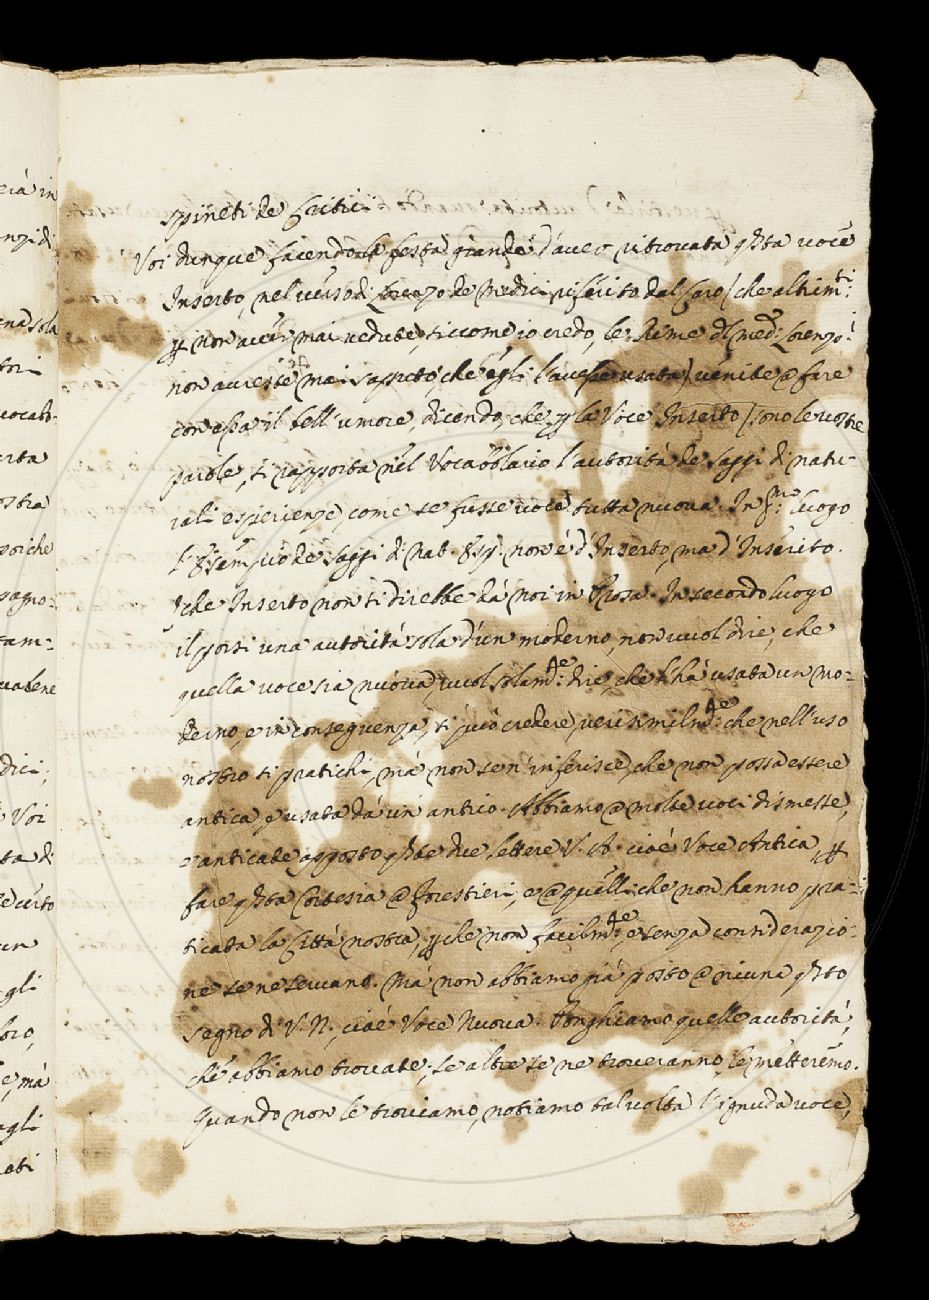 eià in
spineti de Critici
enzi di
Voi dunque facendo le festa grande d'aver ritrovata q̃sta voce
Inserto, nel verso di Lorenzo de Medici riferito dal Caro (che altrim.ti
ena sola
non aver mai vedute, siccome io credo, le Rime del med: Lorenzo
tori
non avreste mai saputo, che egli l'avesse usata) venite a fare
vocab-
con essa il bell'umore, dicendo, che la voce Inserto (sono le vostre
erta
parole, si rapporta nel Vocabolario l'autorità de Saggi di natu-
ostra
rali esperienze, come se fusse voce tutta nuova. In p.mo luogo
poiche
l'Esempio de Saggi di Nat. Esp. non è d'Inserto, ma d'Inserito.
pagno:
che Inserto non si direbbe dà noi in Prosa. In secondo luogo
tam=
il porsi una autorità sola d'un moderno, non vuol dire, che
va bene
quella voce sia nuova, vuol solam.te dire, che l'hà usata un mo-
derno, e in conseguenza, si può credere, verisimilm.te che nell'uso
dici;
nostro si pratichi, ma non se n'inferisce, che non possa essere
Voi
antica, e usata dà un antico. Abbiamo a molte voci dismesse,
ta di
e anticate apposto q̃ste due lettere V. A. cioè Voce Antica,
certo
fare q̃sta Cortesia a Forestieri, e a quelli che non hanno pra-
un
ticata la Città nostra, che non facilm.te e senza considerazio-
gli
ne se ne servano. Mà non abbiamo già posto a niuna q̃sto
oro,
segno di V. N. cioè Voce Nuova. Ponghiamo quelle autorità,
e, mà
che abbiamo trovate; se altre se ne troveranno, le metteremo.
agli
Quando non le troviamo, notiamo talvolta l'ignuda voce,
ati